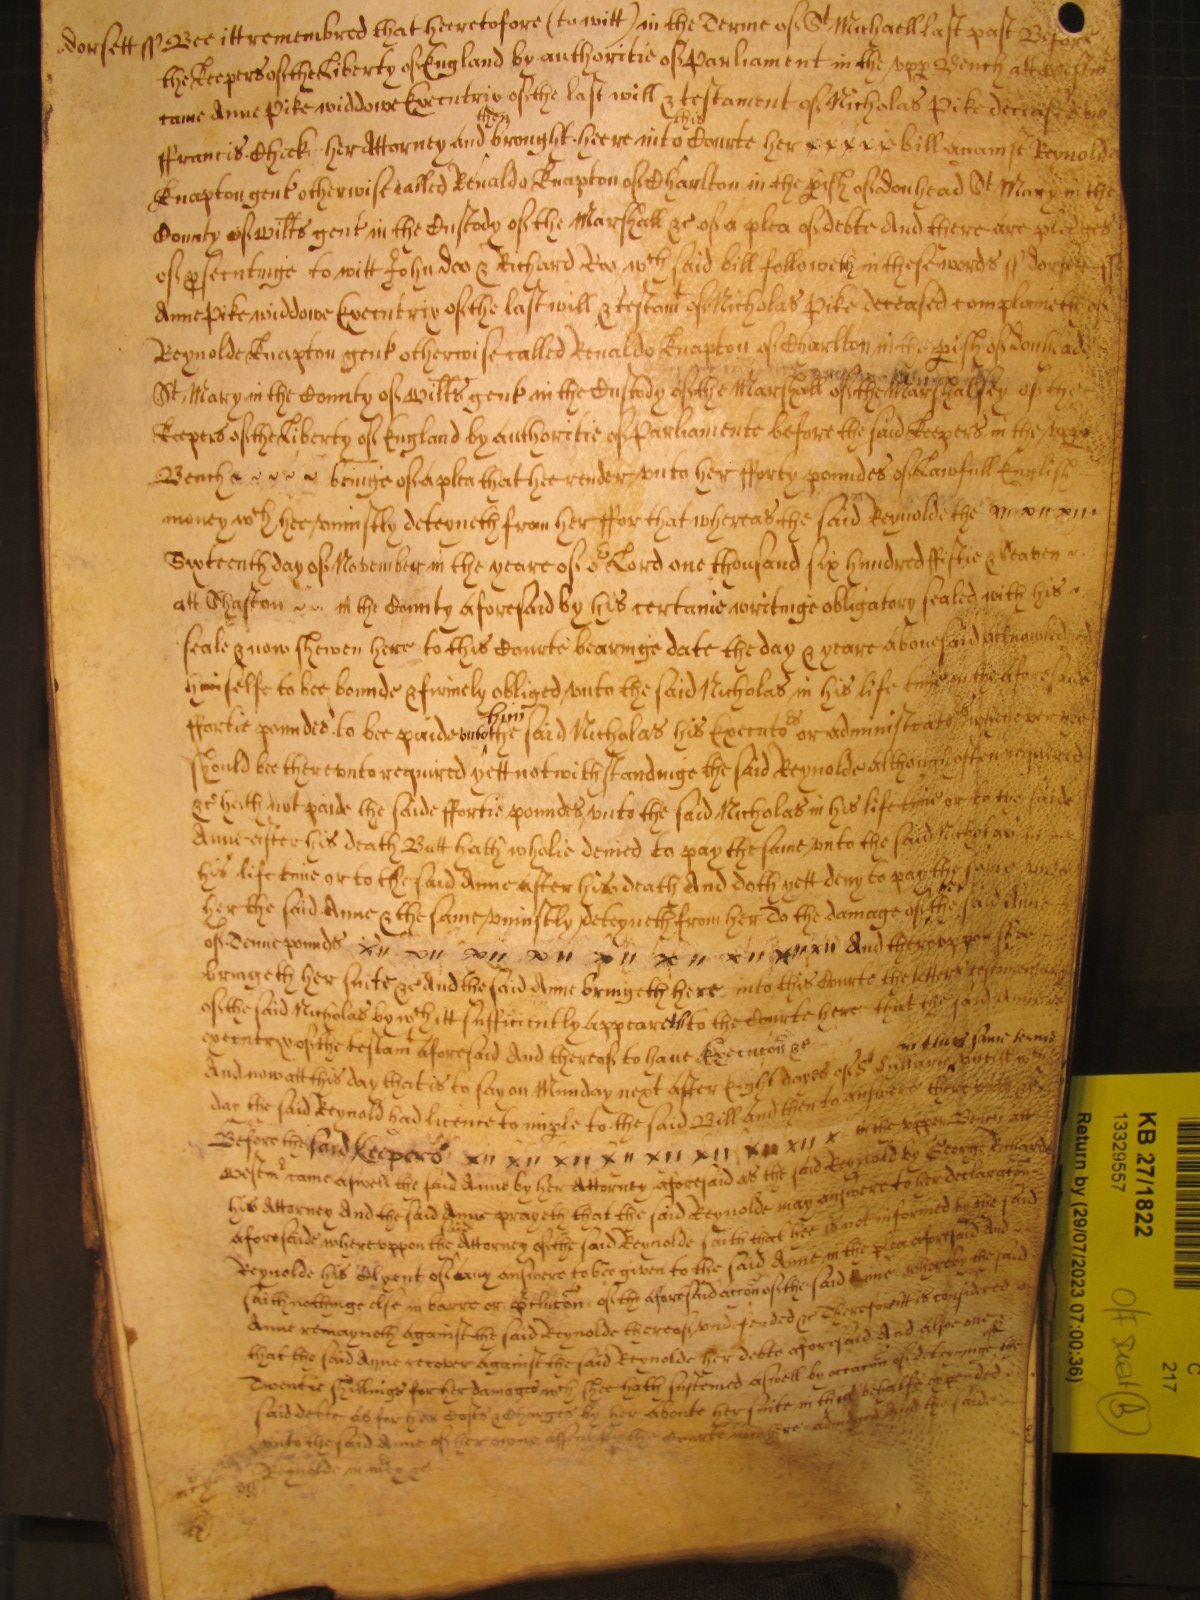 dorsett ss Bee itt remembred that heeretofore (to witt) in the Terme of St Michaell last past Before
the Keepers of the Liberty of England by authoritie of Parliament in the upp Bench att Westm
came Anne Pike widdowe Executrix of the last will & testament of Nicholas Pike deceased by
ffrancis Cheeke her Attorney and then brought heere into this Courte her x x x x x bill against Reynolde
Knapton gent otherwise called Renaldo Knapton of Charlton in the pish of Donhead St Mary in the
County of Wilts gent in the Custody of the Marshall &c of a plea of debte And there are pledges
of psecutinge to witt John Doo & Richard Roo wch said bill followeth in these words ss dorsett ss
Anne Pike widdowe Executrix of the last will & testamt of Nicholas Pike deceased complaineth of
Reynolde Knapton gent otherwise called Renaldo Knapton of Charlton in the pish of Donhead
St Mary in the County of Wilts gent in the Custody of the Marshall of the Marshalsey of the
Keepers of the Liberty of England by authoritie of Parliamente before the said Keepers in the upp
Bench beinge of a plea that hee render unto her fforty poundes of Lawfull English
money wch hee uniustly deteyneth from her ffor that whereas the said Reynolde the
Sixteenth day of November in the yeare of or Lord one thousand six hundred ffiftie & Seaven
att Shaston in the County aforesaid by his certaine writinge obligatory sealed with his
seale & now shewen here to this Courte bearinge date the day & yeare abovesaid acknowledged
himselfe to bee bounde & firmely obliged unto the said Nicholas in his life time in the aforesaide
ffortie poundes to bee paide unto him the said Nicholas his Executors or administrators whenever hee
should bee thereunto required yett notwithstandinge the said Reynolde although often required
&c hath not paide the saide ffortie poundes unto the said Nicholas in his life time or to the saide
Anne after his death Butt hath wholie denied to pay the same unto the said Nicholas in
his life time or to the said Anne after his death And doth yett deny to pay the same unto
her the said Anne & the same uniustly deteyneth from her To the damage of her the said Anne
of Tenne pounds And thereuppon shee
bringeth her suite &c And the said Anne bringeth here into this Courte the letters testamentary
of the said Nicholas by wch itt sufficiently appeareth to the Courte here that the said Anne is
executrix of the testamt aforesaid And thereof to have Execucon &c
And now att this day that is to say on Munday next after Eight dayes of St Hillarie in this same terme untill wch
day the said Reynold had licence to imple to the said Bill and then to answere
Before the said Keepers in the upper Bench att
Westmr came aswell the said Anne by her Attorney aforesaid as the said Reynold by George Richards
his Attorney And the said Anne prayeth that the said Reynolde may answere to her declaraton
aforesaide whereuppon the said Attorney of the said Reynolde saith that hee is not informed by the said
Reynolde his Clyent of any answere to bee given to the said Anne in the plea aforesaid And
saith nothinge else in barre or pclucon of the aforesaid accon of the said Anne whereby the said
Anne remayneth against the said Reynolde thereof undefended &c Therefore itt is considered
that the said Anne recover against the said Reynolde her debte aforesaid And alsoe one &
Twentie shillings for her damages wch shee hath susteined aswell by occacon of deteininge the
said debte as for her Costs & Charges by her aboute her suite in that behalfe expended
unto the said Anne of her owne assent by the Courte now here adiudged And the saide
Reynolde in mcy &c
KB 27/1822
13329557
Return by (29/07/2023 07:00:36)
C
217